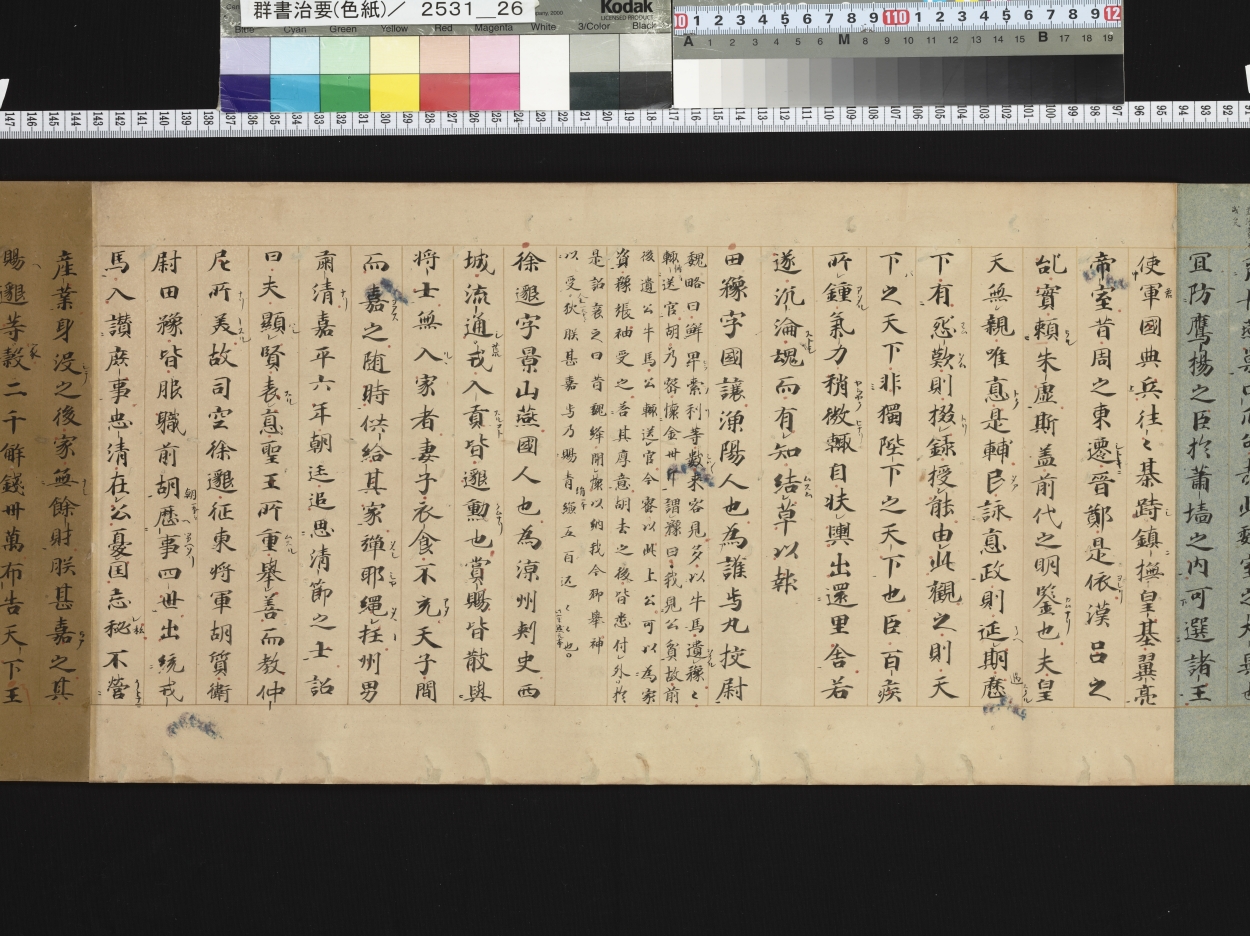 群書治要(色紙)／ 2531__26
Kodak
LICENSED PRODUCT
Blue Cyan Green Yellow Red Magenta White 3/Color Black
宜防鷹揚之臣於蕭墻之内可選諸王
使軍國典兵往〻基跱鎮撫皇基翼亮
帝室昔周之東遷晉鄭是依漢呂之
乱實頼朱虚斯盖前代之明鑒也夫皇
天無親唯悳是輔民詠悳政則延期歴
下有怨歎則掇録授能由此觀之則天
下之天下非獨陛下之天下也臣百疾
所鍾氣力稍微輙自扶輿出還里舍若
遂沉淪魂而有知結草以報
田豫字國讓漁陽人也為護烏丸挍尉
魏略曰鮮卑素利等數来客見多以牛馬遺豫〻
輙送官胡乃密懐金卅斤謂豫曰我見公貧故前
後遺公牛馬公輙送官今密以此上公可以為家
資豫張袖受之荅其厚意胡去之後皆悉付外於
是詔襃之曰昔魏絳開懐以納戎今卿舉袖
以受狄朕甚嘉焉乃賜青縑五百疋
徐邈字景山燕國人也為涼州刺史西
域流通戎入貢皆邈勲也賞賜皆散與
将士無入家者妻子衣食不充天子聞
而嘉之随時供給其家彈耶繩枉州男
肅清嘉平六年朝廷追思清節之士詔
曰夫顯賢表悳聖王所重舉善而教仲
尼所美故司空徐邈征東将軍胡質衛
尉田豫皆服職前胡歴事四世出統戎
馬入讃庶事忠清在公憂国忘私不營
産業身没之後家無餘財朕甚嘉之其
賜邈等穀二千斛錢卅萬布告天下王